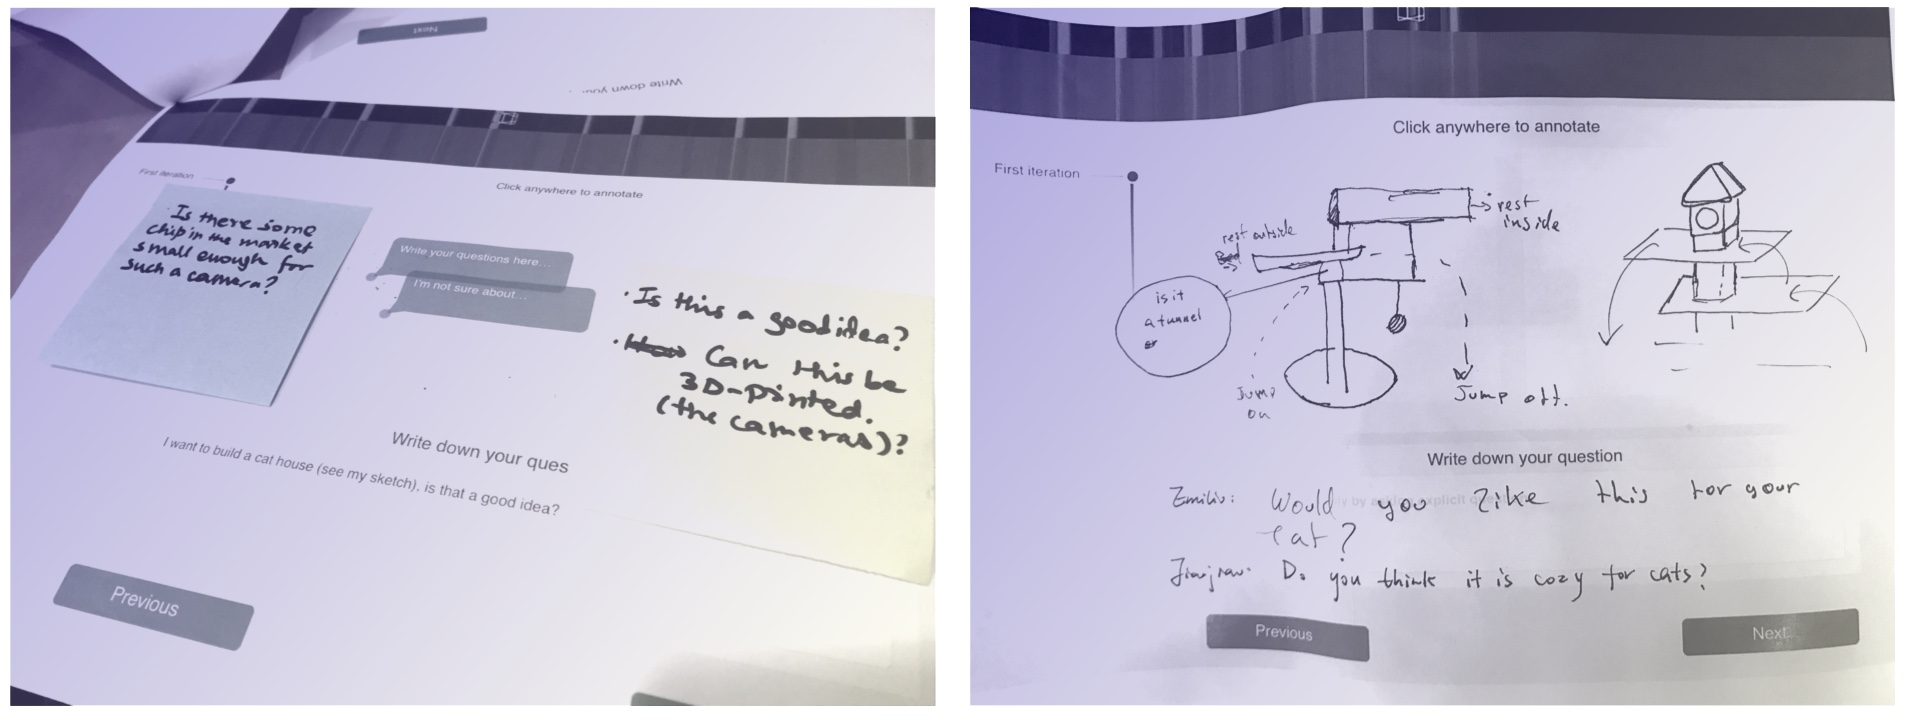 Next
Write down you...
First iteration
Click anywhere to annotate
· Is there some
chip in the market
small enough for
such a camera?
Write your questions here...
I'm not sure about...
· Is this a good idea?
· Can this be
3D-printed.
(the cameras)?
Write down your ques
I want to build a cat house (see my sketch), is that a good idea?
Previous
Click anywhere to annotate
First iteration
rest
inside
rest outside
is it
a tunnel
or
Jump
on
Jump off.
Write down your question
Would you like this for your
cat?
Do you think it is cozy for cats?
Previous
Next